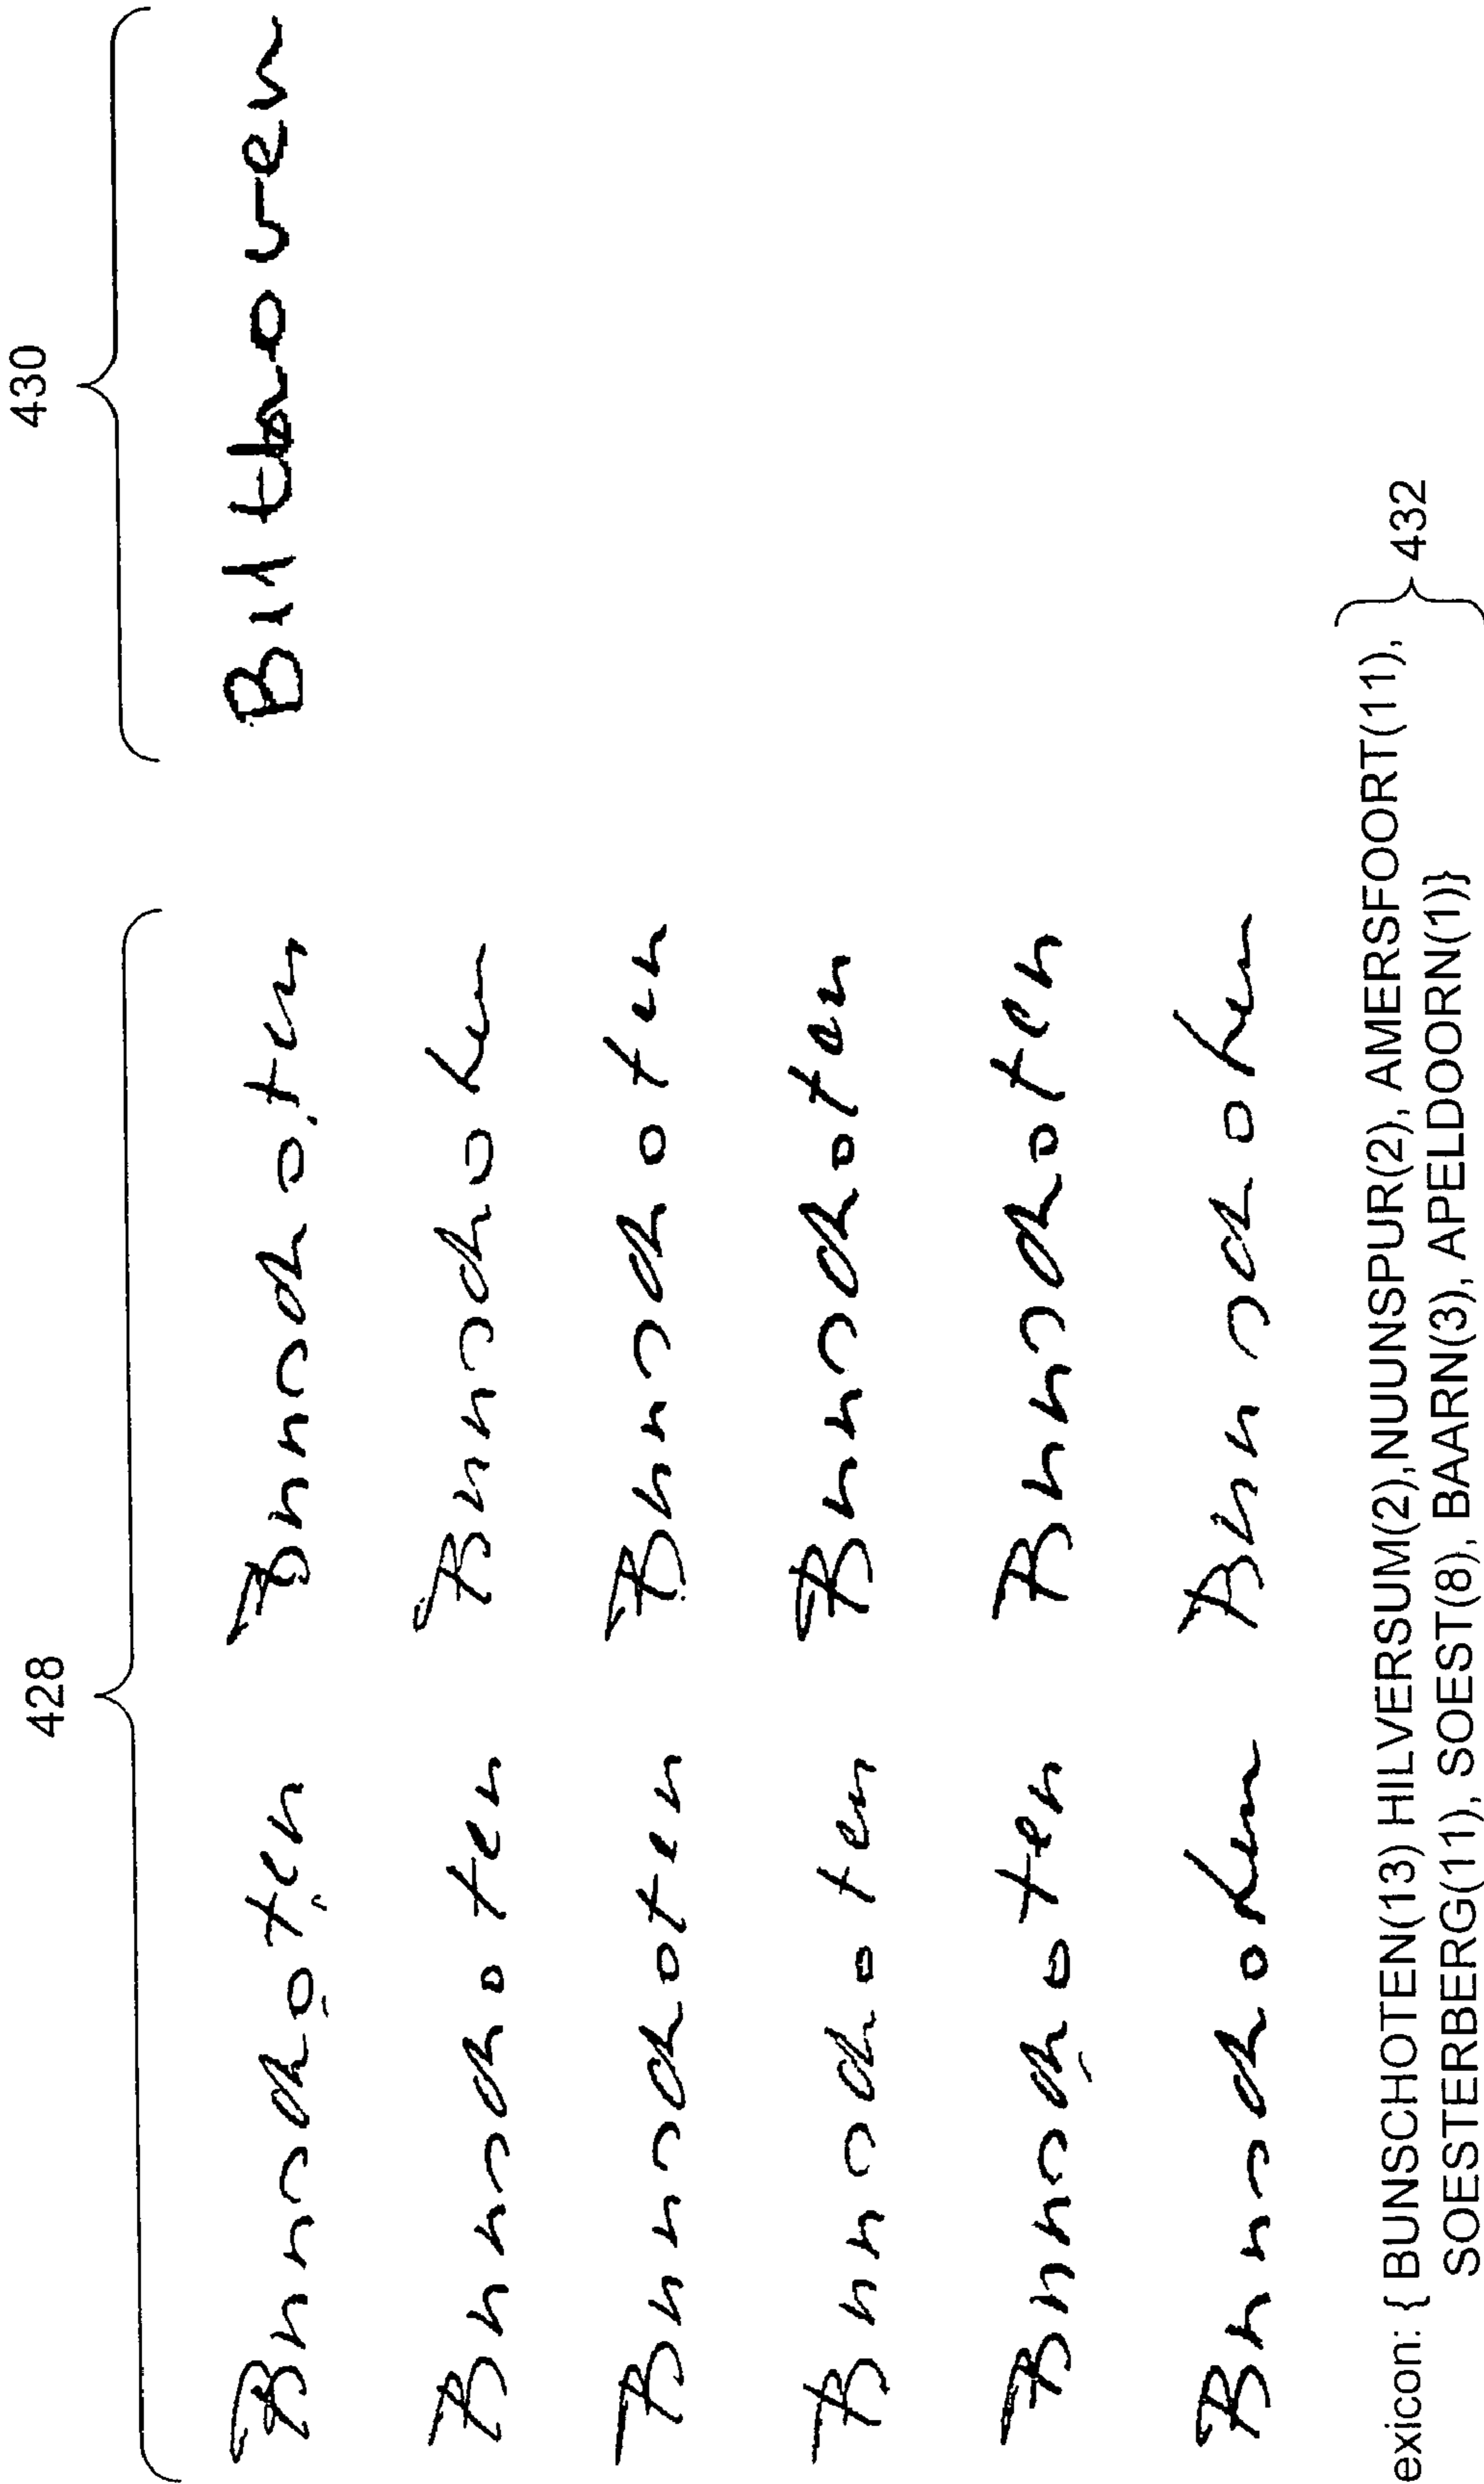 428 430
Bunschoten Bunschoten Bilthoven
Bunschoten Bunschoten
Bunschoten Bunschoten
Bunschoten Bunschoten
Bunschoten Bunschoten
Bunschoten Bunschoten
exicon: { BUNSCHOTEN(13) HILVERSUM(2),NUUNSPUR(2), AMERSFOORT(11),
432
SOESTERBERG(11), SOEST(8), BAARN(3), APELDOORN(1)}